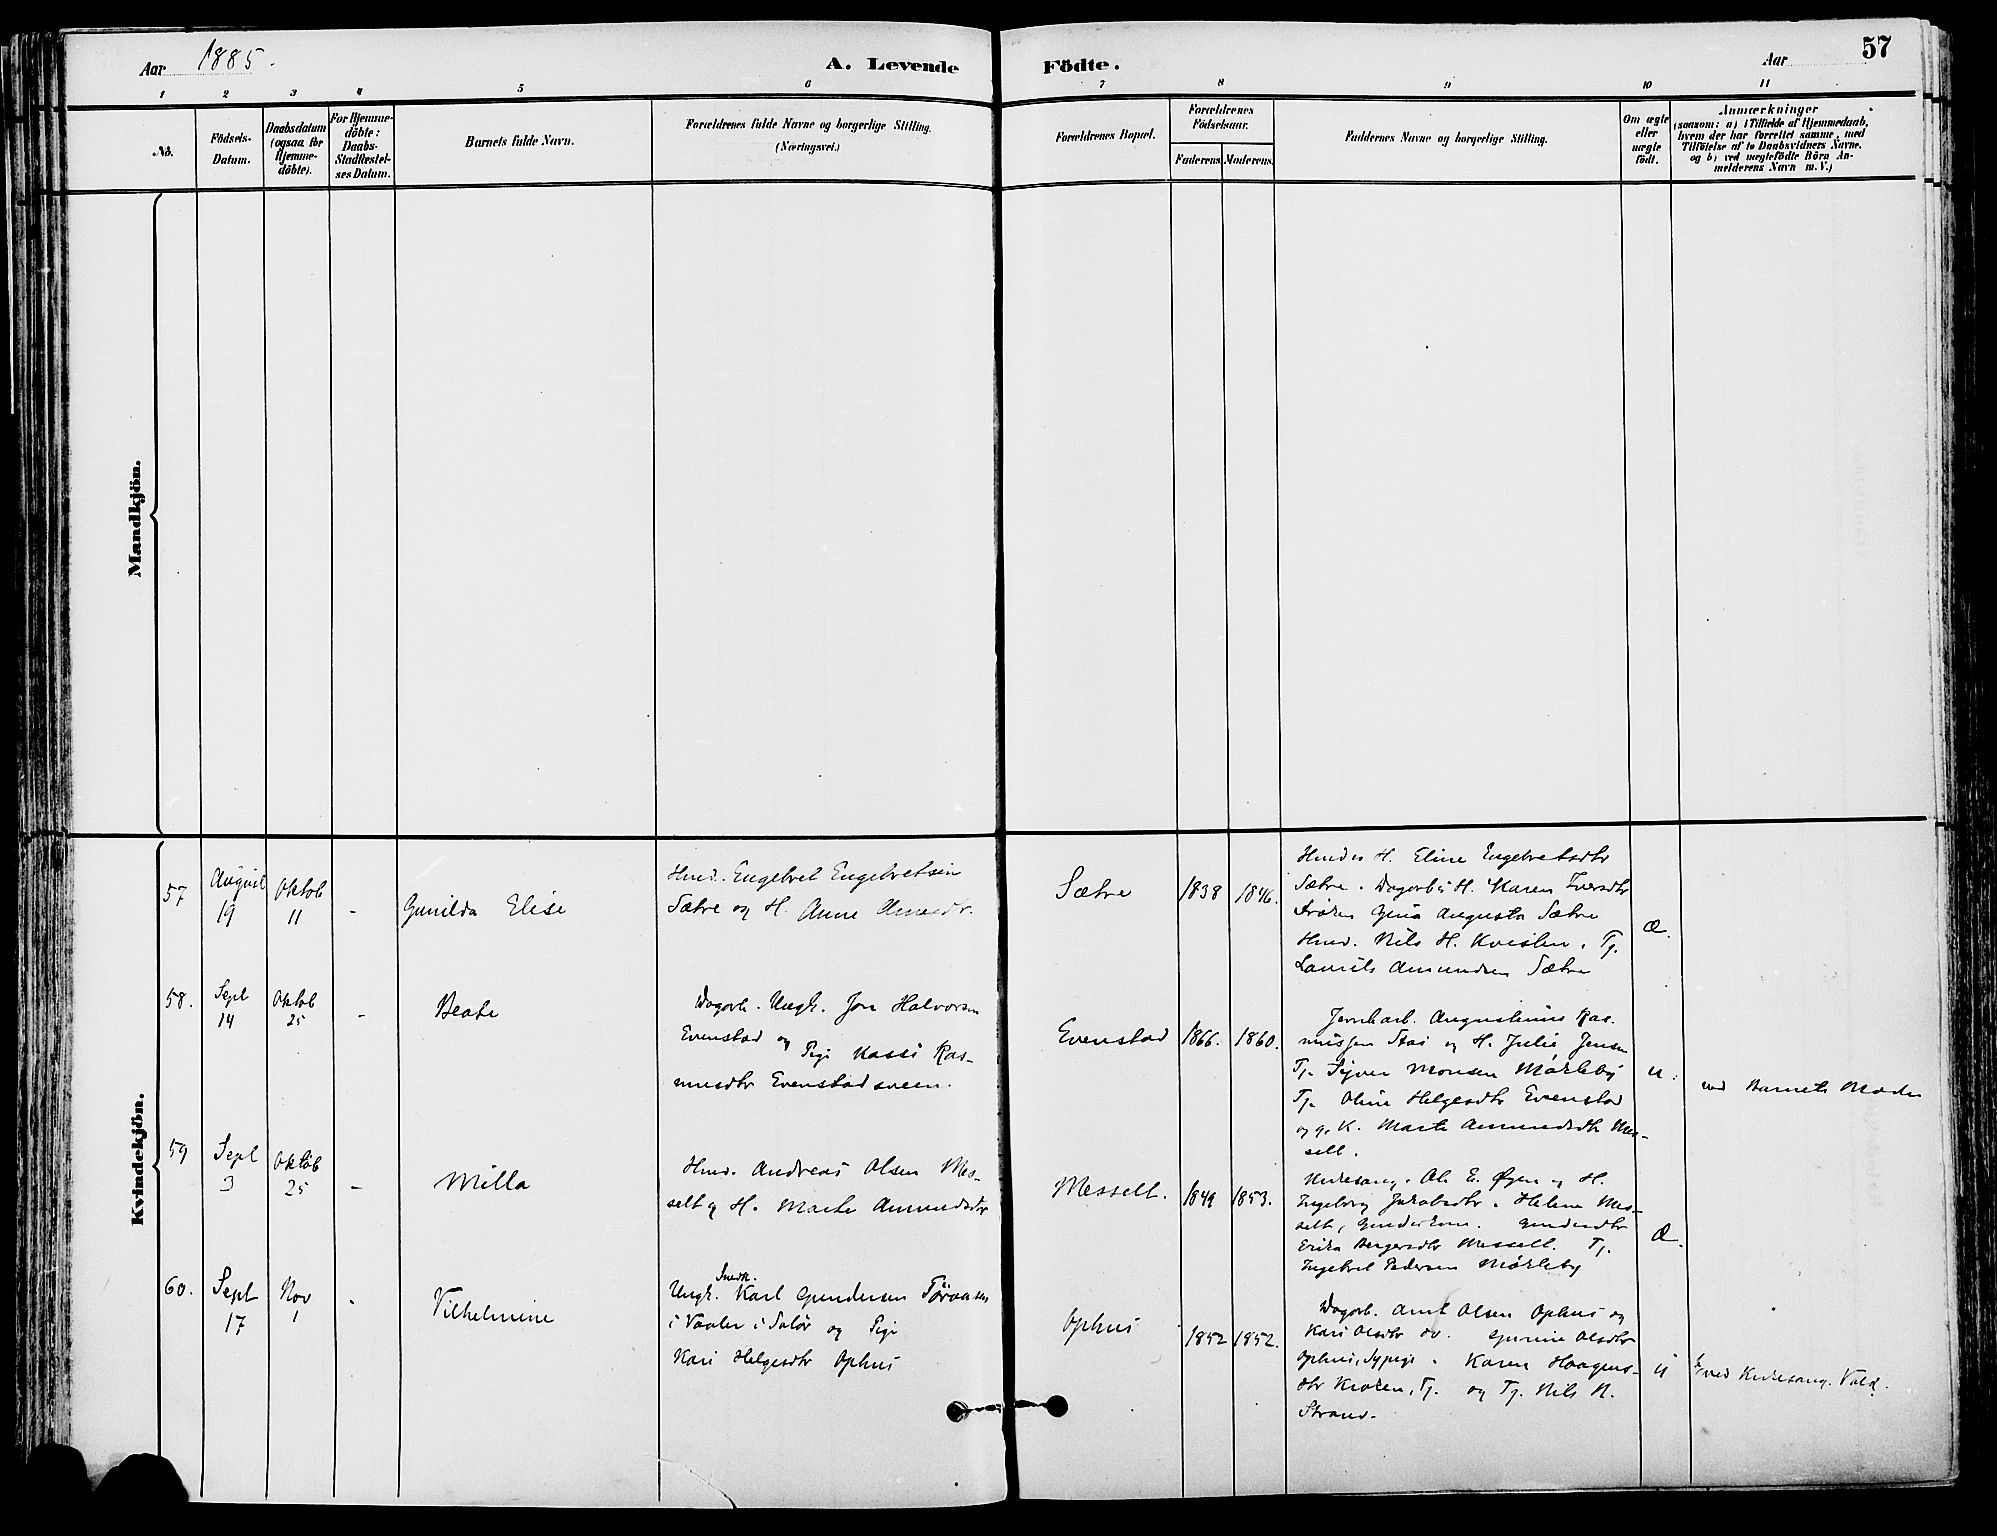 Aar 1885.
A. Levende Födte.
Aar
57
1 2 3 4 5 6 7 8 9 10 11
No.
Födsels-
Datum.
Daabsdatum
(ogsaa for
Hjemme-
döbte).
For Hjemme-
döbte:
Daabs-
Stadfæstel-
ses Datum.
Barnets fulde Navn.
Forældrenes fulde Navne og borgerlige Stilling.
(Næringsvei.)
Forældrenes Bopæl.
Forældrenes
Födselsaar.
Faderens. Moderens.
Faddernes Navne og borgerlige Stilling.
Om ægte
eller
uægte
födt.
Anmærkninger
(saasom: a) i Tilfælde af Hjemmedaab,
hvem der har forrettet samme, med
Tilföielse af to Daabsvidners Navne,
og b) ved uægtefödte Börn An-
melderens Navn m. V.)
Mandkjön.
Kvindekjön.
57
August
19
Oktob
11
-
Gunilda Elise
Hmd. Engebret Engebretsen
Sætre og H. Anne Amundr.
Sætre
1838
1846.
H. Eline Engebretsdtr
Sætre. Dagarb H. Karen Iversdtr
Frøken Gina Augusta Sætre
Hmd. Nils H. Kvislen. Tj.
Laurits Amundsen Sætre
Æ.
58.
Sept
14
Oktob
25
-
Beate
Dagarb. Ungk. Jon Halvorsen
Evenstad og
Pige Kassi Ras-
musdtr Evenstadsveen.
Evenstad
1866.
1860.
Jernbarb. Augustinius Ras-
mussen Stai og H. Julie Jensen
Tj. Syver Monsen Mørkeby
Tj. Oline Helgesdtr Evenstad
og g. K. Marte Amundsdtr Mes-
selt.
u.
ved Barnets Moder
59
Sept
3
Oktob
25
-
Milla
Hmd. Andreas Olsen Mes-
selt og H. Marte Amundsdtr
Messelt.
1849
1853.
Kirkesang. Ole E. Øyen og H.
Ingeborg Jakobsdtr. Helene Mes-
selt, Gundersdtr
Erika Bergersdtr Messelt. Tj.
Ingebret Pedersen Mørkeby
Æ.
60.
Sept
17
Nov
1
-
Vilhelmine
Snedk.
Ungk. Karl Gundersen
i Vaaler i Solør og Pige
Kari Helgesdtr Ophus
Ophus
1852
1852.
Dagarb. Arnt Olsen Ophus og
Kari Olsdtr do. Gunine Olsdtr
Ophus, Sypige. Karen Haagens-
dtr Kroken, Tj. og Tj. Nils N.
Strand.
u
ved Kirkesang. Vold.